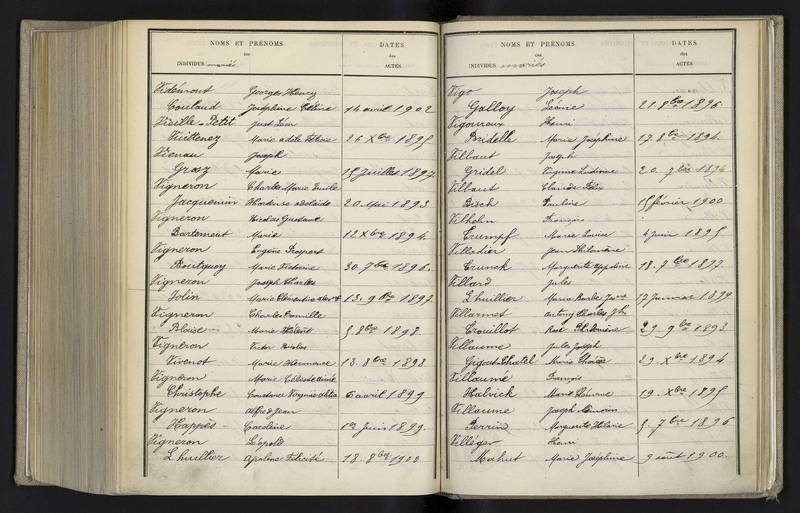 NOMS ET PRÉNOMS
des
INDIVIDUS mariés
DATES
des
ACTES
Vidémont Georges Henry
Coulaud Joséphine Céline 14 avril 1902
Vieille-Petit Just Léon
26 Xbre 1895
Vienau Joseph
Graz Marie 15 Juillet 1897
Vigneron Charles Marie Emile
Jacquemin Hortense Adelaïde 20 Mai 1893
Vigneron Nicolas Gustave
Bartement Marie 12 Xbre 1894
Vigneron Eugène Prospert
Boulguoy Marie Victorine 30. 7bre 1896.
Vigneron Joseph Charles
Jolin Marie Clémentine 13. 9bre 1897
Vigneron Charles Camille
Blaise Marie Hélène 5 8bre 1898
Vigneron Victor Nicolas
Vivenot Marie Hermance 13. 8bre 1898
Vigneron Marie Céleste
Christophe Constance 6 avril 1899
Vigneron Jean
Happes Caroline 1er Juin 1899
Vigneron Léopold
Lhuillier Apoline Félicité 18. 8bre 1900
NOMS ET PRÉNOMS
des
INDIVIDUS mariés
DATES
des
ACTES
Vigo Joseph
Galloy Léonie 21 8bre 1896
Vigouroux Henri
Bridelle Marie Joséphine 17 8bre 1894
Vilbaut Joseph
Gridel 20. 9bre 1896
Vilbaut Félix
Bisch Pauline 15 février 1900
Vilhelm François
Crumpf Marie Louise 4 Juin 1895
Villadier Jean
Crunck Marguerite 18. 7bre 1897
Villard Jules
Lhuillier Maria Barbe 17 Janvier 1899
Villaumet Antony Charles
Crouillot Rose Philomène 29. 9bre 1893
Villaume Jules Joseph
Marie 29. Xbre 1894
Villaumé François
Halvick Marie 19. Xbre 1895
Villaume Joseph
Perrin Marguerite 5. 7bre 1896
Villéger Henri
Mahut Marie Joséphine 9 août 1900.